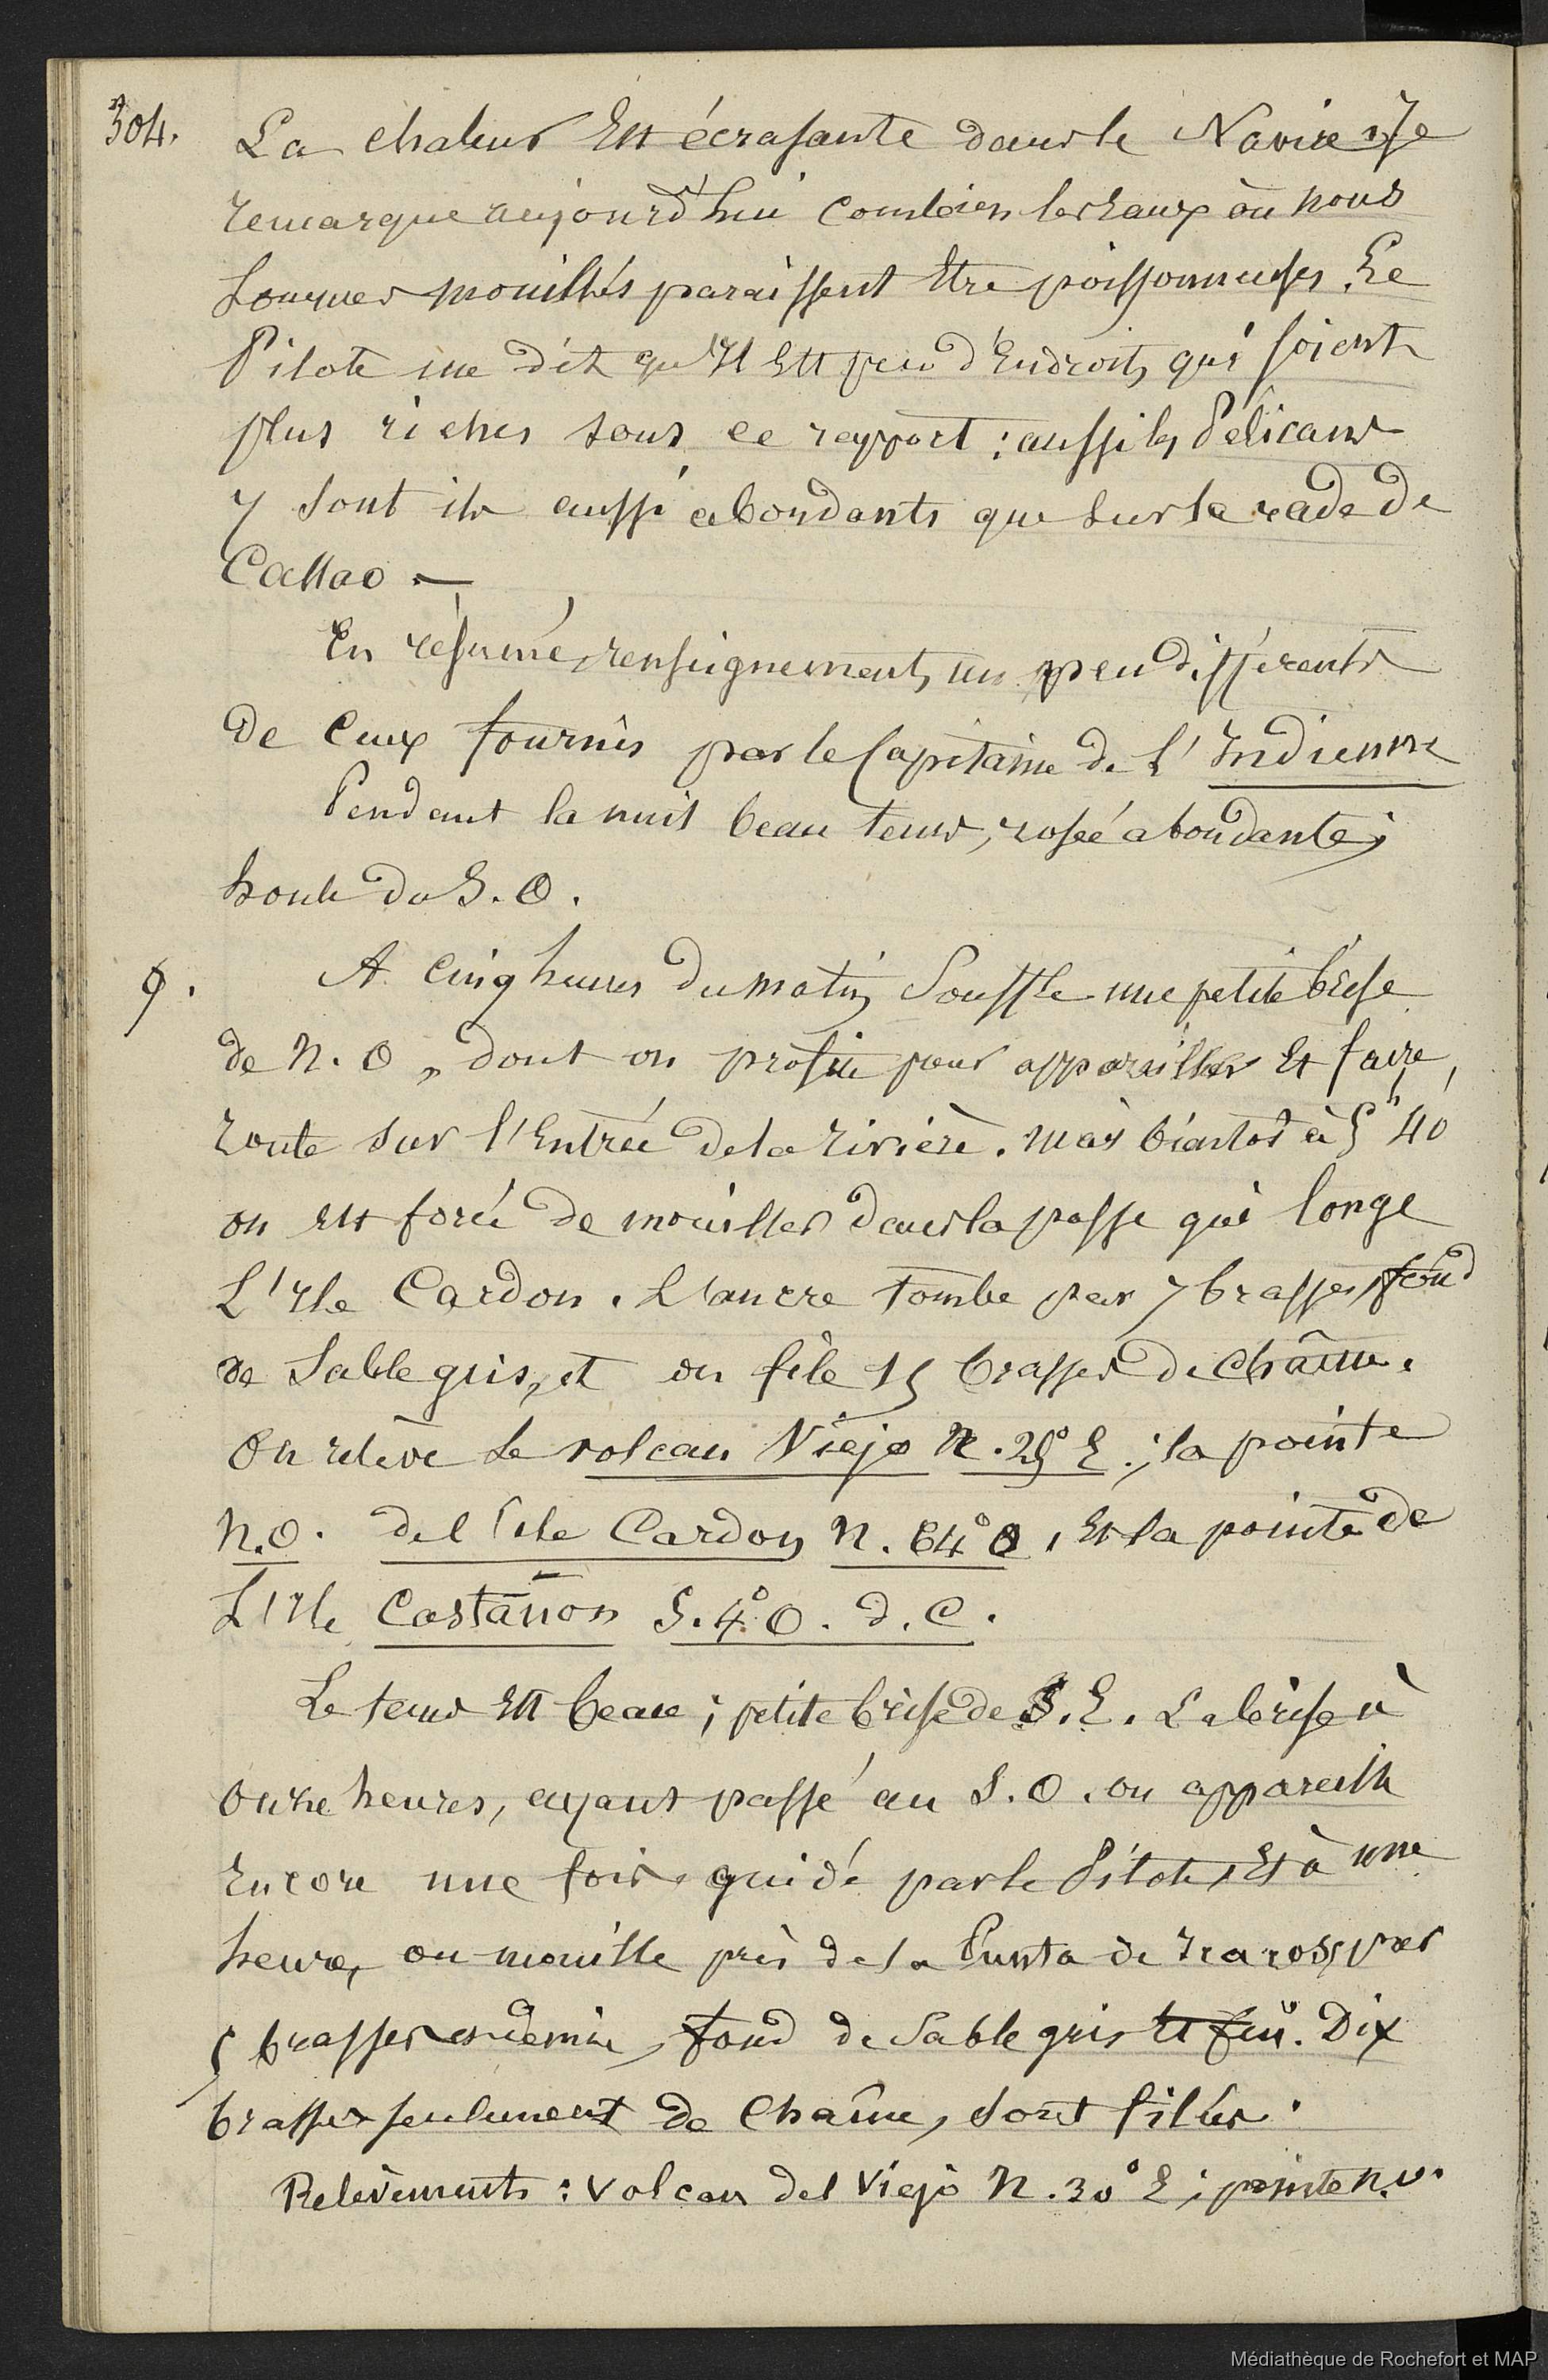 304.
La chaleur Est écrasante dans le Navire ; Je
remarque aujourd'hui combien les Eaux où nous
sommes mouillés paraissent Etre poissonneuses. Le
Pilote me dit qu'Il Est peu d'Endroits qui soient
plus riches sous ce rapport : aussi les Pélicans
y sont ils aussi abondants que sur la rade de
Callao. —
En résumé, renseignements un peu différents
de Ceux fournis par le Capitaine de l'Indienne
Pendant la nuit beau tems, rosée abondante ;
houle du S. O.
9. A Cinq heures du matin, Souffle une petite brise
de N. O, dont on profite pour appareiller Et faire,
route sur l'Entrée de la rivière. mais bientôt à 5h 40'
on Est forcé de mouiller dans la passe qui longe
L'Ile Cardon. L'ancre tombe par 7 brasses, fond
de Sable gris, et on file 15 brasses de Chaîne.
On relève Le volcan Viejo N. 25° E. ; la pointe
N.O. de l'ile Cardon N. 64° O, Et la pointe de
L'Ile Castañon S. 4° O. d. C.
Le tems Est beau ; petite brise de S. E. La brise à
Onze heures, ayant passé au S. O. on appareille
Encore une fois, guidé par le Pilote, Et à une
heure, on mouille près de la Punta de Icacos, par
5 brasses et demie, fond de Sable gris Et fin. Dix
brasses seulement de Chaîne, sont filées.
Relèvements : Volcan del Viejo N. 30° E ; pointe N.O.
Médiathèque de Rochefort et MAP